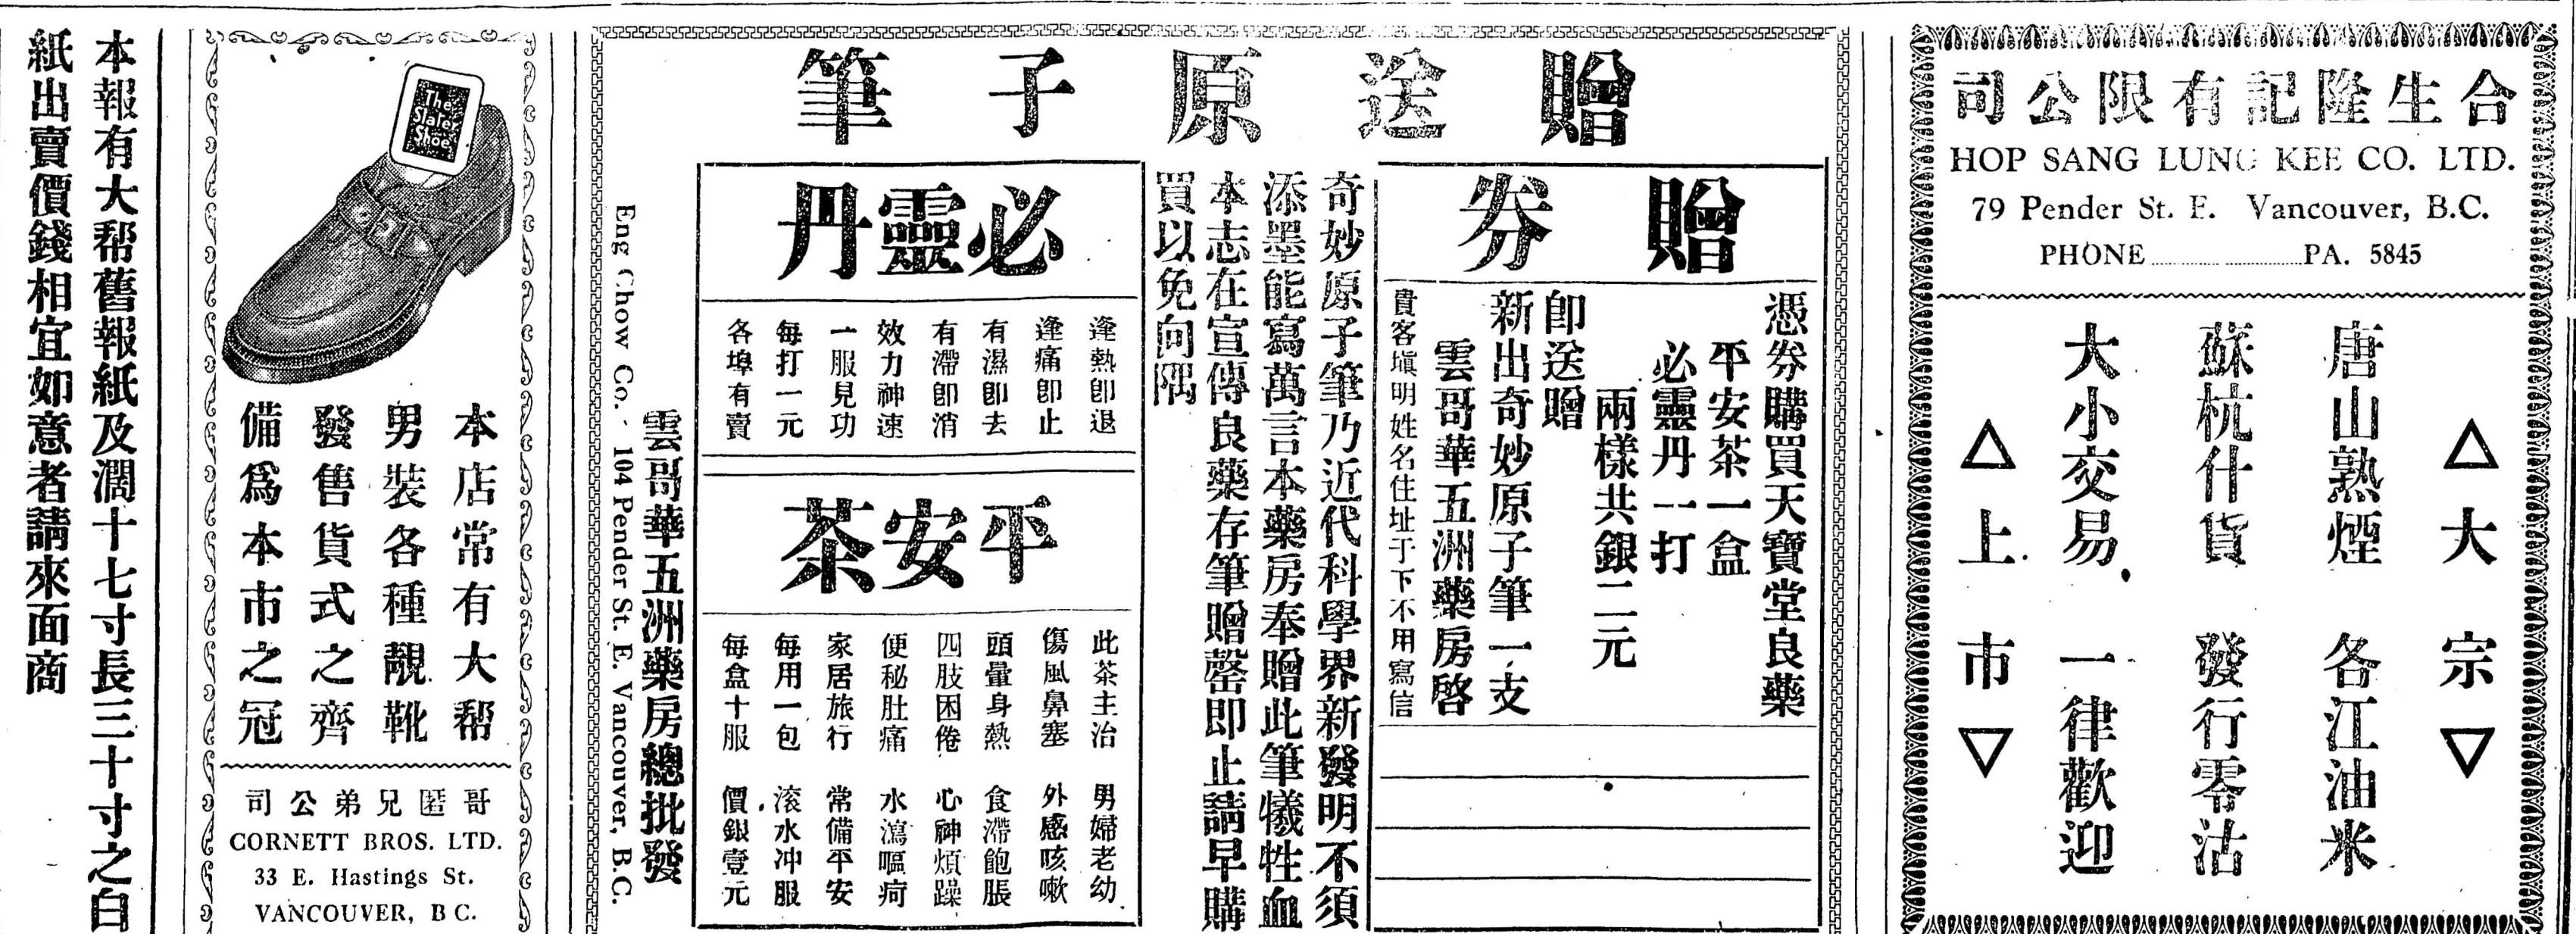 合生隆記有限公司
HOP SANG LUNG KEE CO. LTD.
79 Pender St. E. Vancouver, B.C.
PHONE PA. 5845
大宗
唐山熟煙 各江油米
蘇杭什貨 發行零沽
大小交易 一律歡迎
上市
贈送原子筆
贈券
憑券購買天寶堂良藥
平安茶一盒
必靈丹一打
兩樣共銀二元
卽送贈
新出奇妙原子筆一支
雲哥華五洲藥房啓
貴客塡明姓名住址于下不用寫信
奇妙原子筆乃近代科學界新發明不須
添墨能寫萬言本藥房奉贈此筆犧牲血
本志在宣傳良藥存筆贈罄即止請早購
買以免向隅
必靈丹
逢熱卽退
逢痛卽止
有濕卽去
有滯卽消
效力神速
一服見功
每打一元
各埠有賣
平安茶
此茶主治 男婦老幼
傷風鼻塞 外感咳嗽
頭暈身熱 食滯飽脹
四肢困倦 心神煩躁
便秘肚痛 水瀉嘔疴
家居旅行 常備平安
每用一包 滚水冲服
每盒十服 價銀壹元
雲哥華五洲藥房總批發
Eng Chow Co. - 104 Pender St. E. Vancouver, B.C.
The
Slater
Shoe
本店常有大帮
男裝各種靚靴
發售貨式之齊
備爲本市之冠
哥匿兄弟公司
CORNETT BROS. LTD.
33 E. Hastings St.
VANCOUVER, B C.
本報有大帮舊報紙及濶十七寸長三十寸之白
紙出賣價錢相宜如意者請來面商